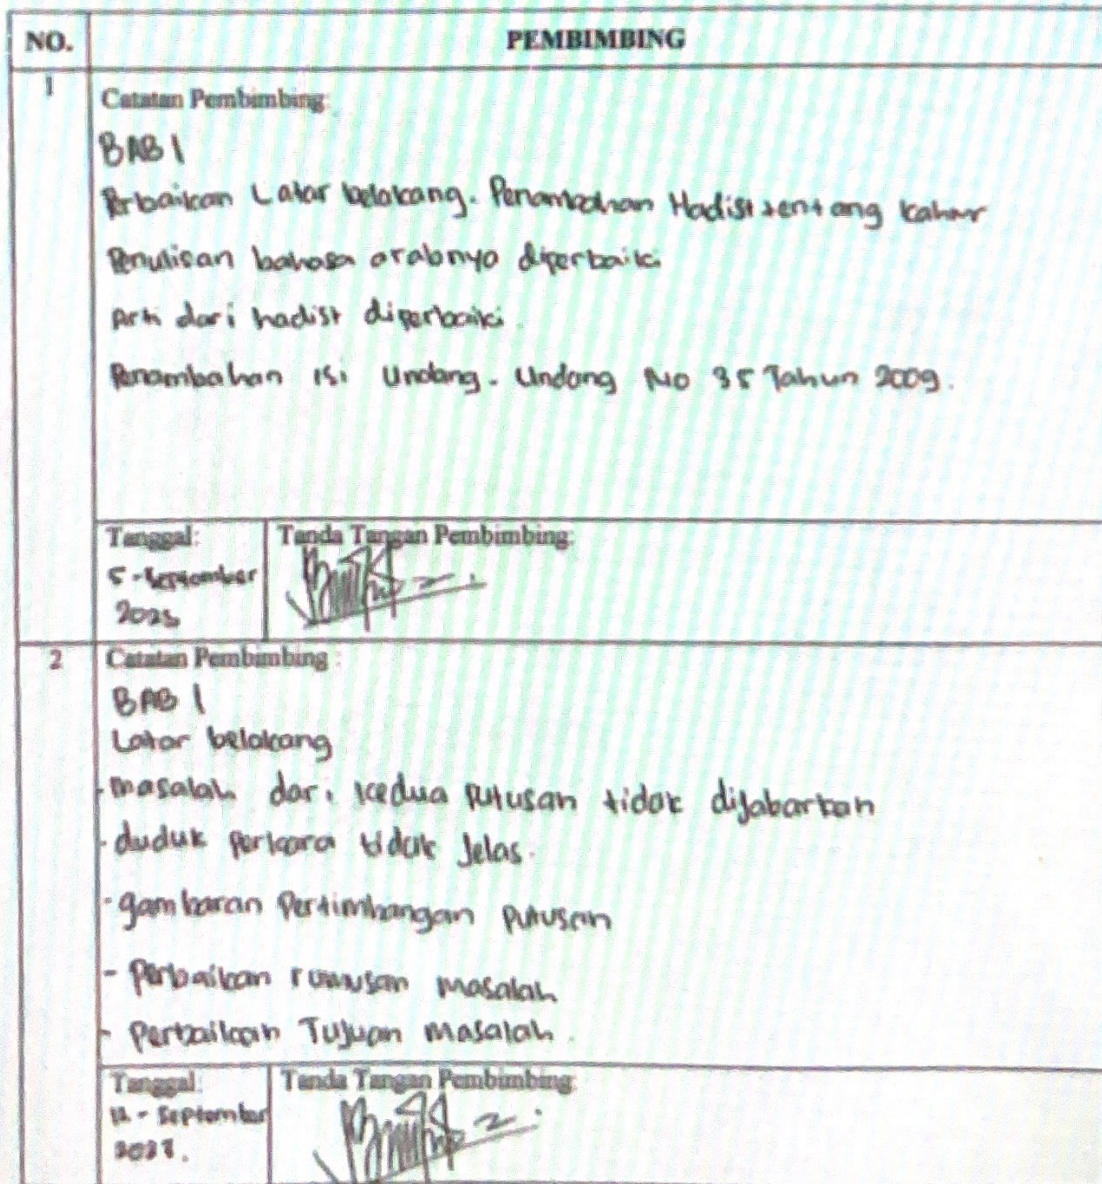 NO. PEMBIMBING
1
Catatan Pembimbing:
BAB 1
Perbaikan Latar belakang. Penambahan Hadist tentang
Penulisan bahasa arabnya diperbaiki
Arti dari hadist diperbaiki.
Penambahan isi Undang-Undang No 35 Tahun 2009.
Tanggal: Tanda Tangan Pembimbing:
5 - September
2 Catatan Pembimbing :
BAB 1
Latar belakang
- masalah dari kedua putusan tidak dijabarkan
- duduk perkara tidak Jelas.
- gambaran Pertimbangan putusan
- perbaikan rumusan masalah
- Perbaikan Tujuan masalah.
Tanggal: Tanda Tangan Pembimbing:
- September